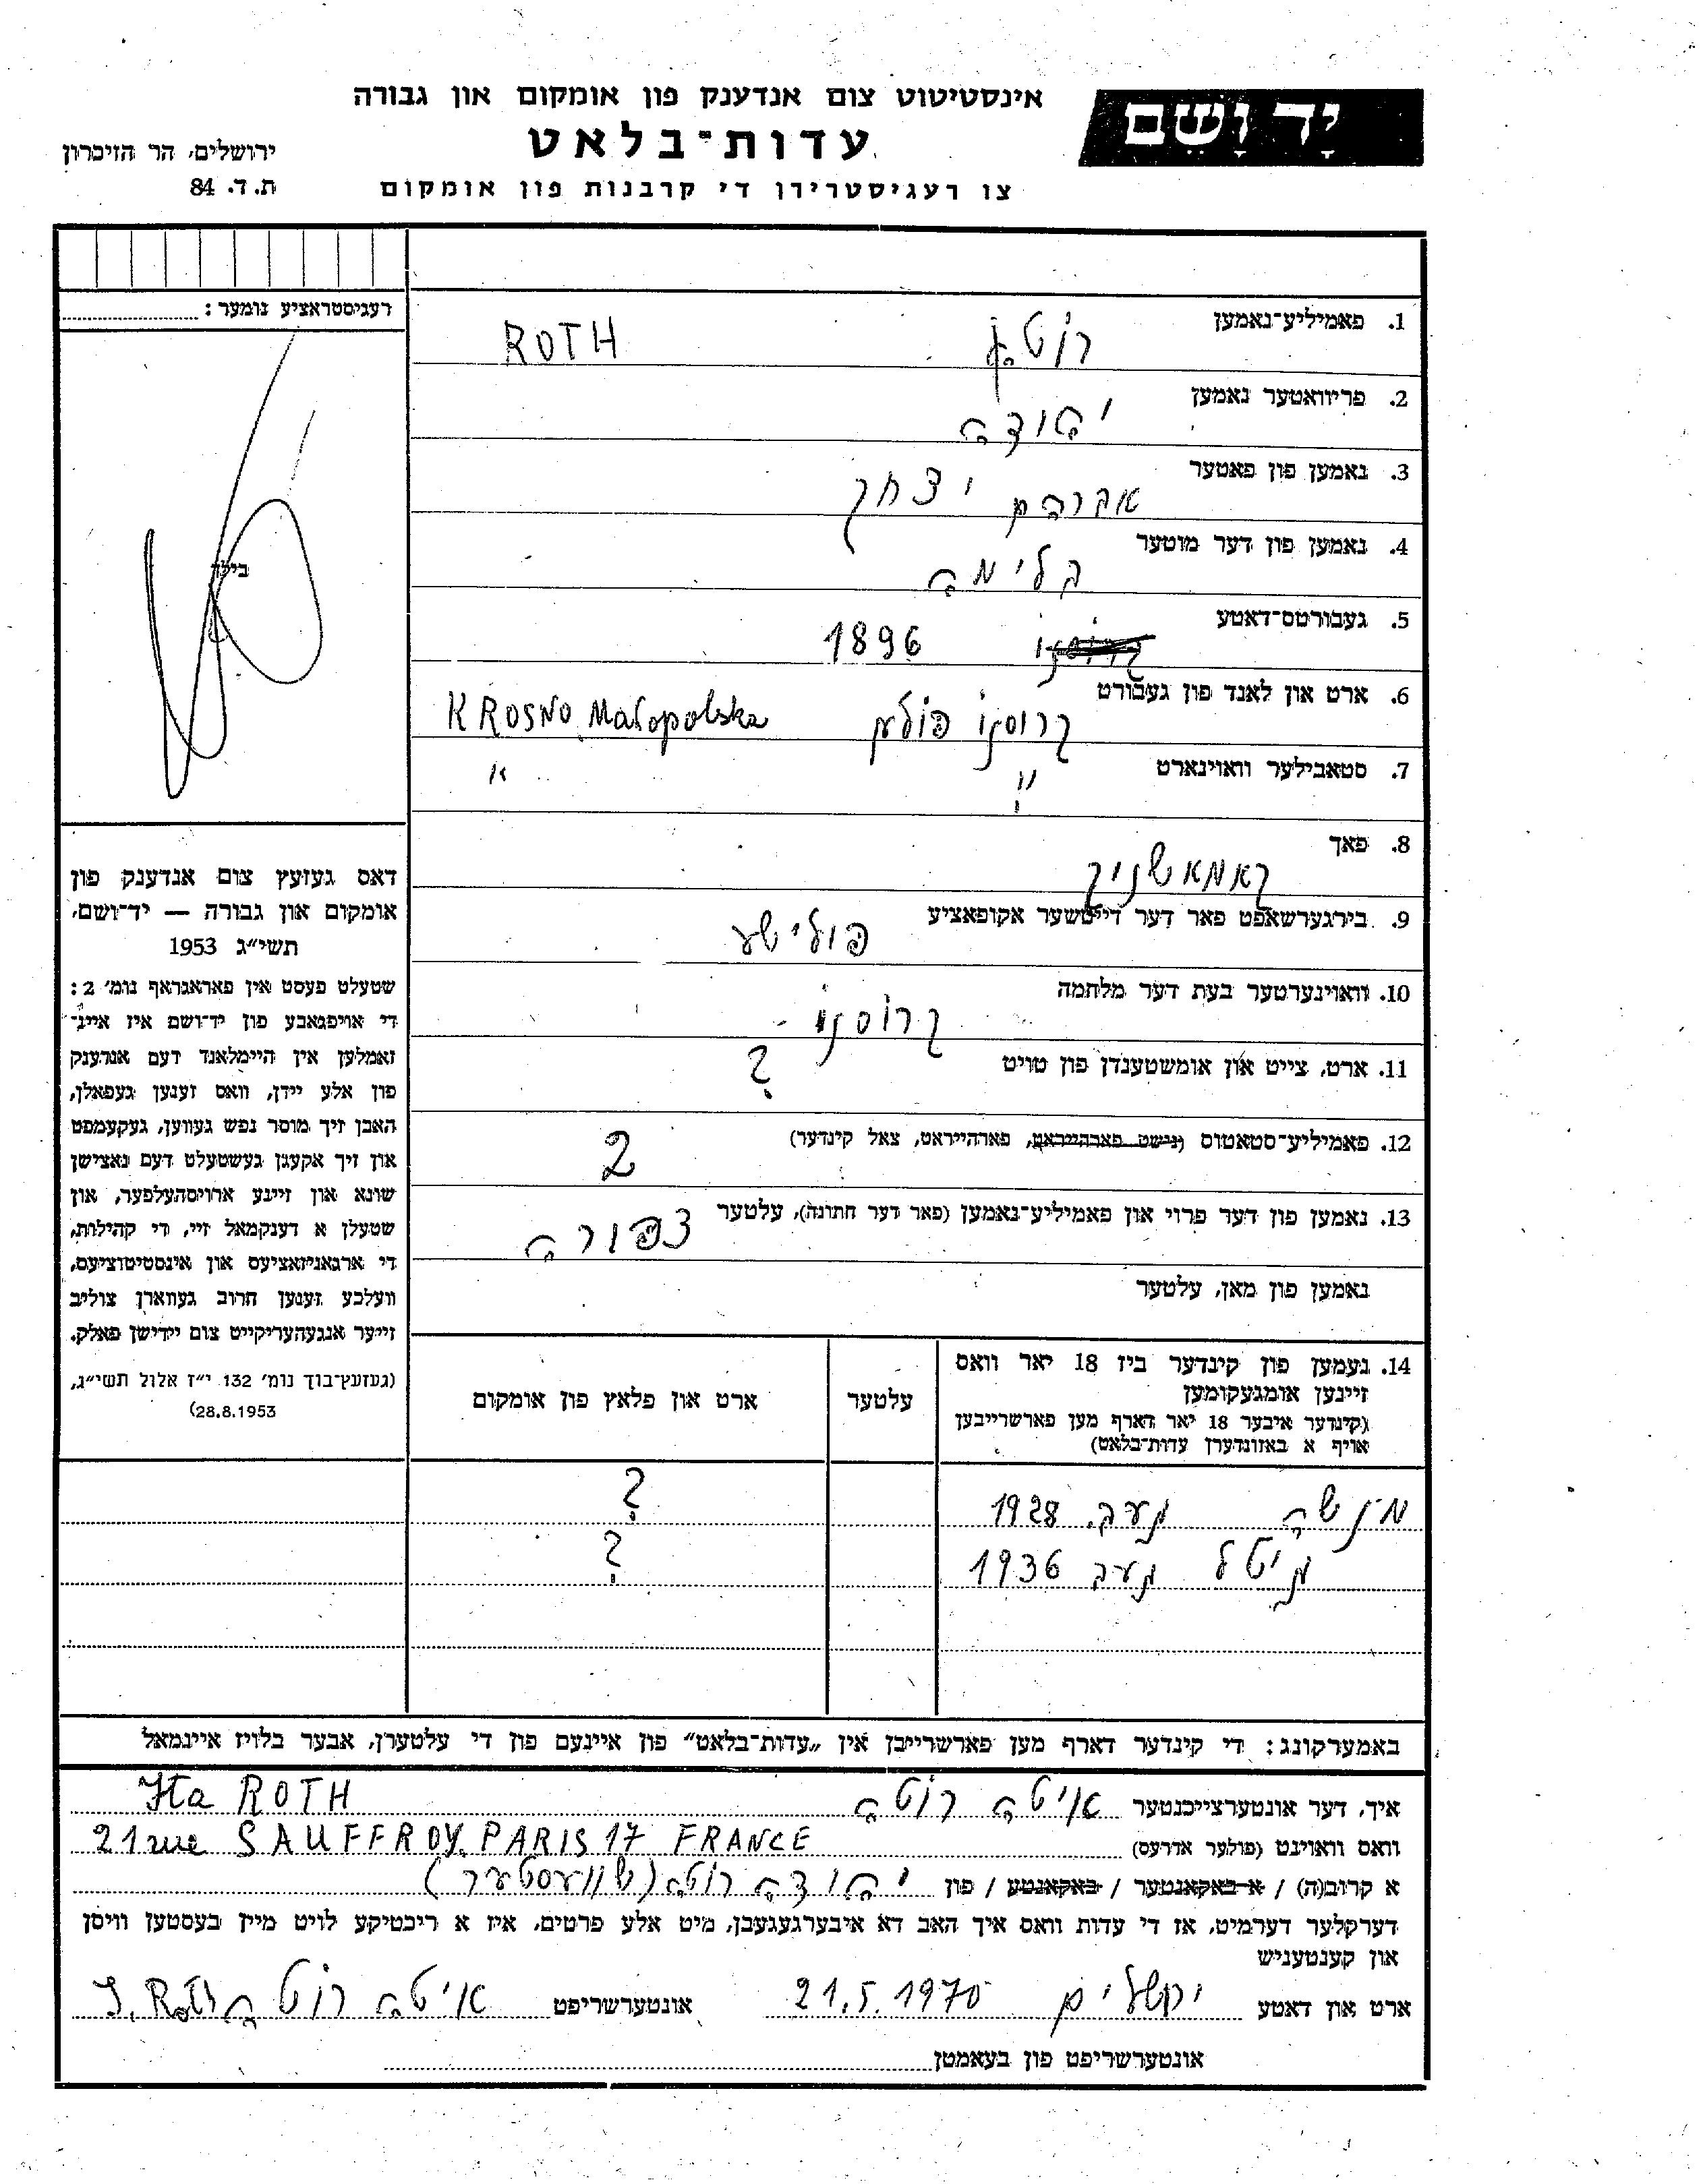 יָד וָשֵׁם
אינסטיטוט צום אנדענק פון אומקום און גבורה
עדות־בלאט
ירושלים, הר הזיכרון
צו רעגיסטרירן די קרבנות פון אומקום
ת. ד. 84
רעגיסטראציע נומער :
1. פאמיליע־נאמען
ROTH
2. פריוואטער נאמען יהודה
3. נאמען פון פאטער אברהם יצחק
4. נאמען פון דער מוטער
5. געבורטס־דאטע 1896
6. ארט און לאנד פון געבורט קרוסנו פולען KROSNO Małopolska
7. סטאבילער וואוינארט " "
8. פאך קאמאשניק
9. בירגערשאפט פאר דער דייטשער אקופאציע פולישע
10. וואוינערטער בעת דער מלחמה קרוסנו -
11. ארט, צייט און אומשטענדן פון טויט ?
12. פאמיליע־סטאטוס (נישט פארהייראט, פארהייראט, צאל קינדער) 2
13. נאמען פון דער פרוי און פאמיליע־נאמען (פאר דער חתונה), עלטער צפורה
נאמען פון מאן, עלטער
14. נעמען פון קינדער ביז 18 יאר וואס
זיינען אומגעקומען
(קינדער איבער 18 יאר דארף מען פארשרייבען
אויף א באזונדערן עדות־בלאט)
עלטער
ארט און פלאץ פון אומקום
מנשה געב. 1928 ?
גיטל געב 1936 ?
בילד
דאס געזעץ צום אנדענק פון
אומקום און גבורה — יד־ושם,
תשי״ג 1953
שטעלט פעסט אין פאראגראף נומ׳ 2 :
די אויפגאבע פון יד־ושם איז איינ־
זאמלען אין היימלאנד דעם אנדענק
פון אלע יידן, וואס זענען געפאלן,
האבן זיך מוסר נפש געווען, געקעמפט
און זיך אקעגן געשטעלט דעם נאצישן
שונא און זיינע ארויסהעלפער, און
שטעלן א דענקמאל זיי, די קהילות,
די ארגאניזאציעס און אינסטיטוציעס,
וועלכע זענען חרוב געווארן צוליב
זייער אנגעהעריקייט צום יידישן פאלק.
(געזעץ־בוך נומ׳ 132 י״ז אלול תשי״ג,
28.8.1953)
באמערקונג : די קינדער דארף מען פארשרייבן אין „עדות־בלאט״ פון איינעם פון די עלטערן, אבער בלויז איינמאל
איך, דער אונטערצייכנטער איטה רוטה Ita ROTH
וואס וואוינט (פולער אדרעס) 21 rue SAUFFROY PARIS 17 FRANCE
א קרוב(ה) / א באקאנטער / באקאנטע / פון יהודה רוטה (שוועסטער)
דערקלער דערמיט, אז די עדות וואס איך האב דא איבערגעגעבן, מיט אלע פרטים, איז א ריכטיקע לויט מיין בעסטען וויסן
און קענטעניש
ארט און דאטע ירושלים 21.5.1970 אונטערשריפט איטה רוטה I. Roth
אונטערשריפט פון בעאמטן